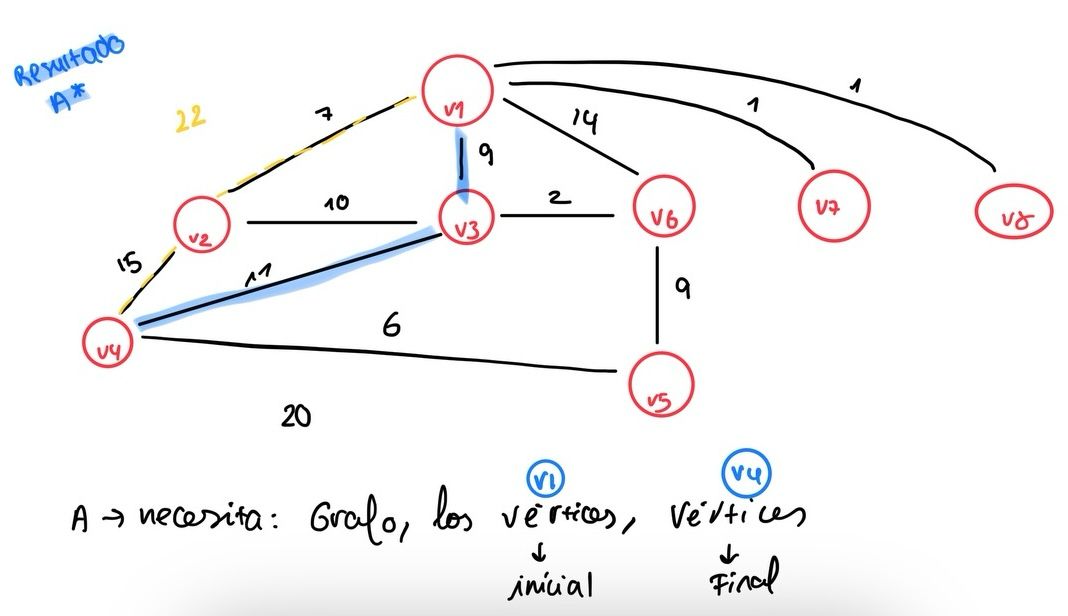 Resultado
A*
22
7
v1
9
14
1
1
v2
10
v3
2
v6
v7
v8
15
11
9
v4
6
v5
20
v1
v4
A → necesita: Grafo, los vértices, vértices
↓ ↓
inicial Final